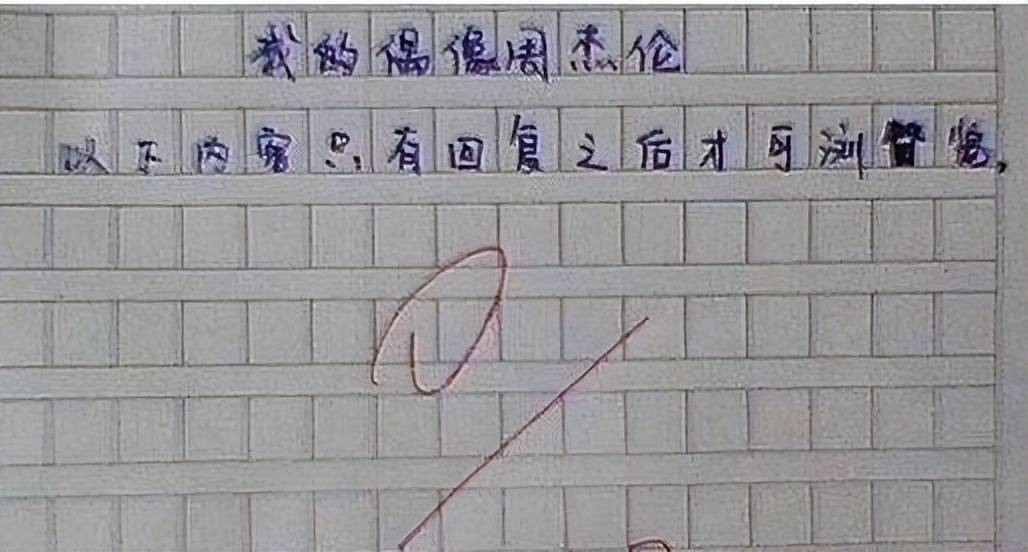 我的偶像周杰伦
以下内容只有回复之后才可浏览,